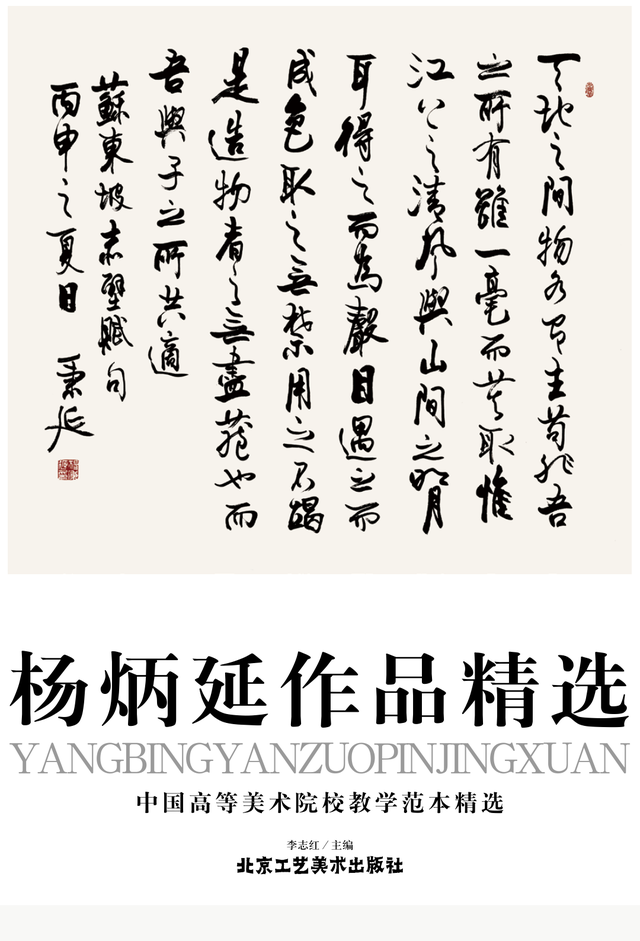 天地之間物各有主苟非吾
之所有雖一毫而莫取惟
江上之清風與山間之明月
耳得之而為聲目遇之而
成色取之無禁用之不竭
是造物者之無盡藏也而
吾與子之所共適
蘇東坡赤壁賦句
丙申之夏日 秉延
杨炳延作品精选
YANGBINGYANZUOPINJINGXUAN
中国高等美术院校教学范本精选
李志红／主编
北京工艺美术出版社